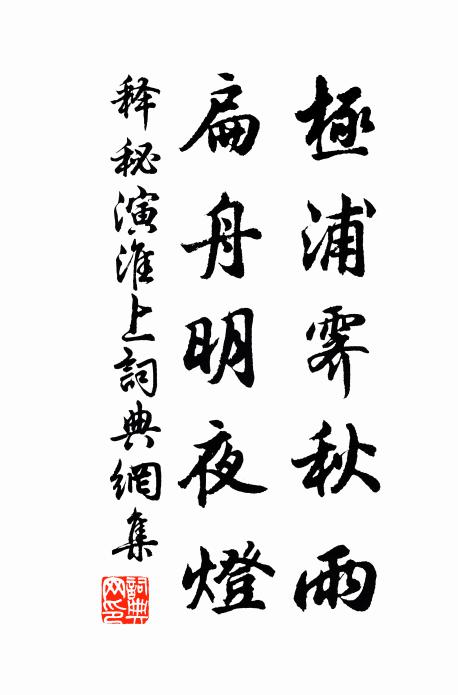 極浦霽秋雨
扁舟明夜燈
释秘演淮上詞典網集
詞典网印